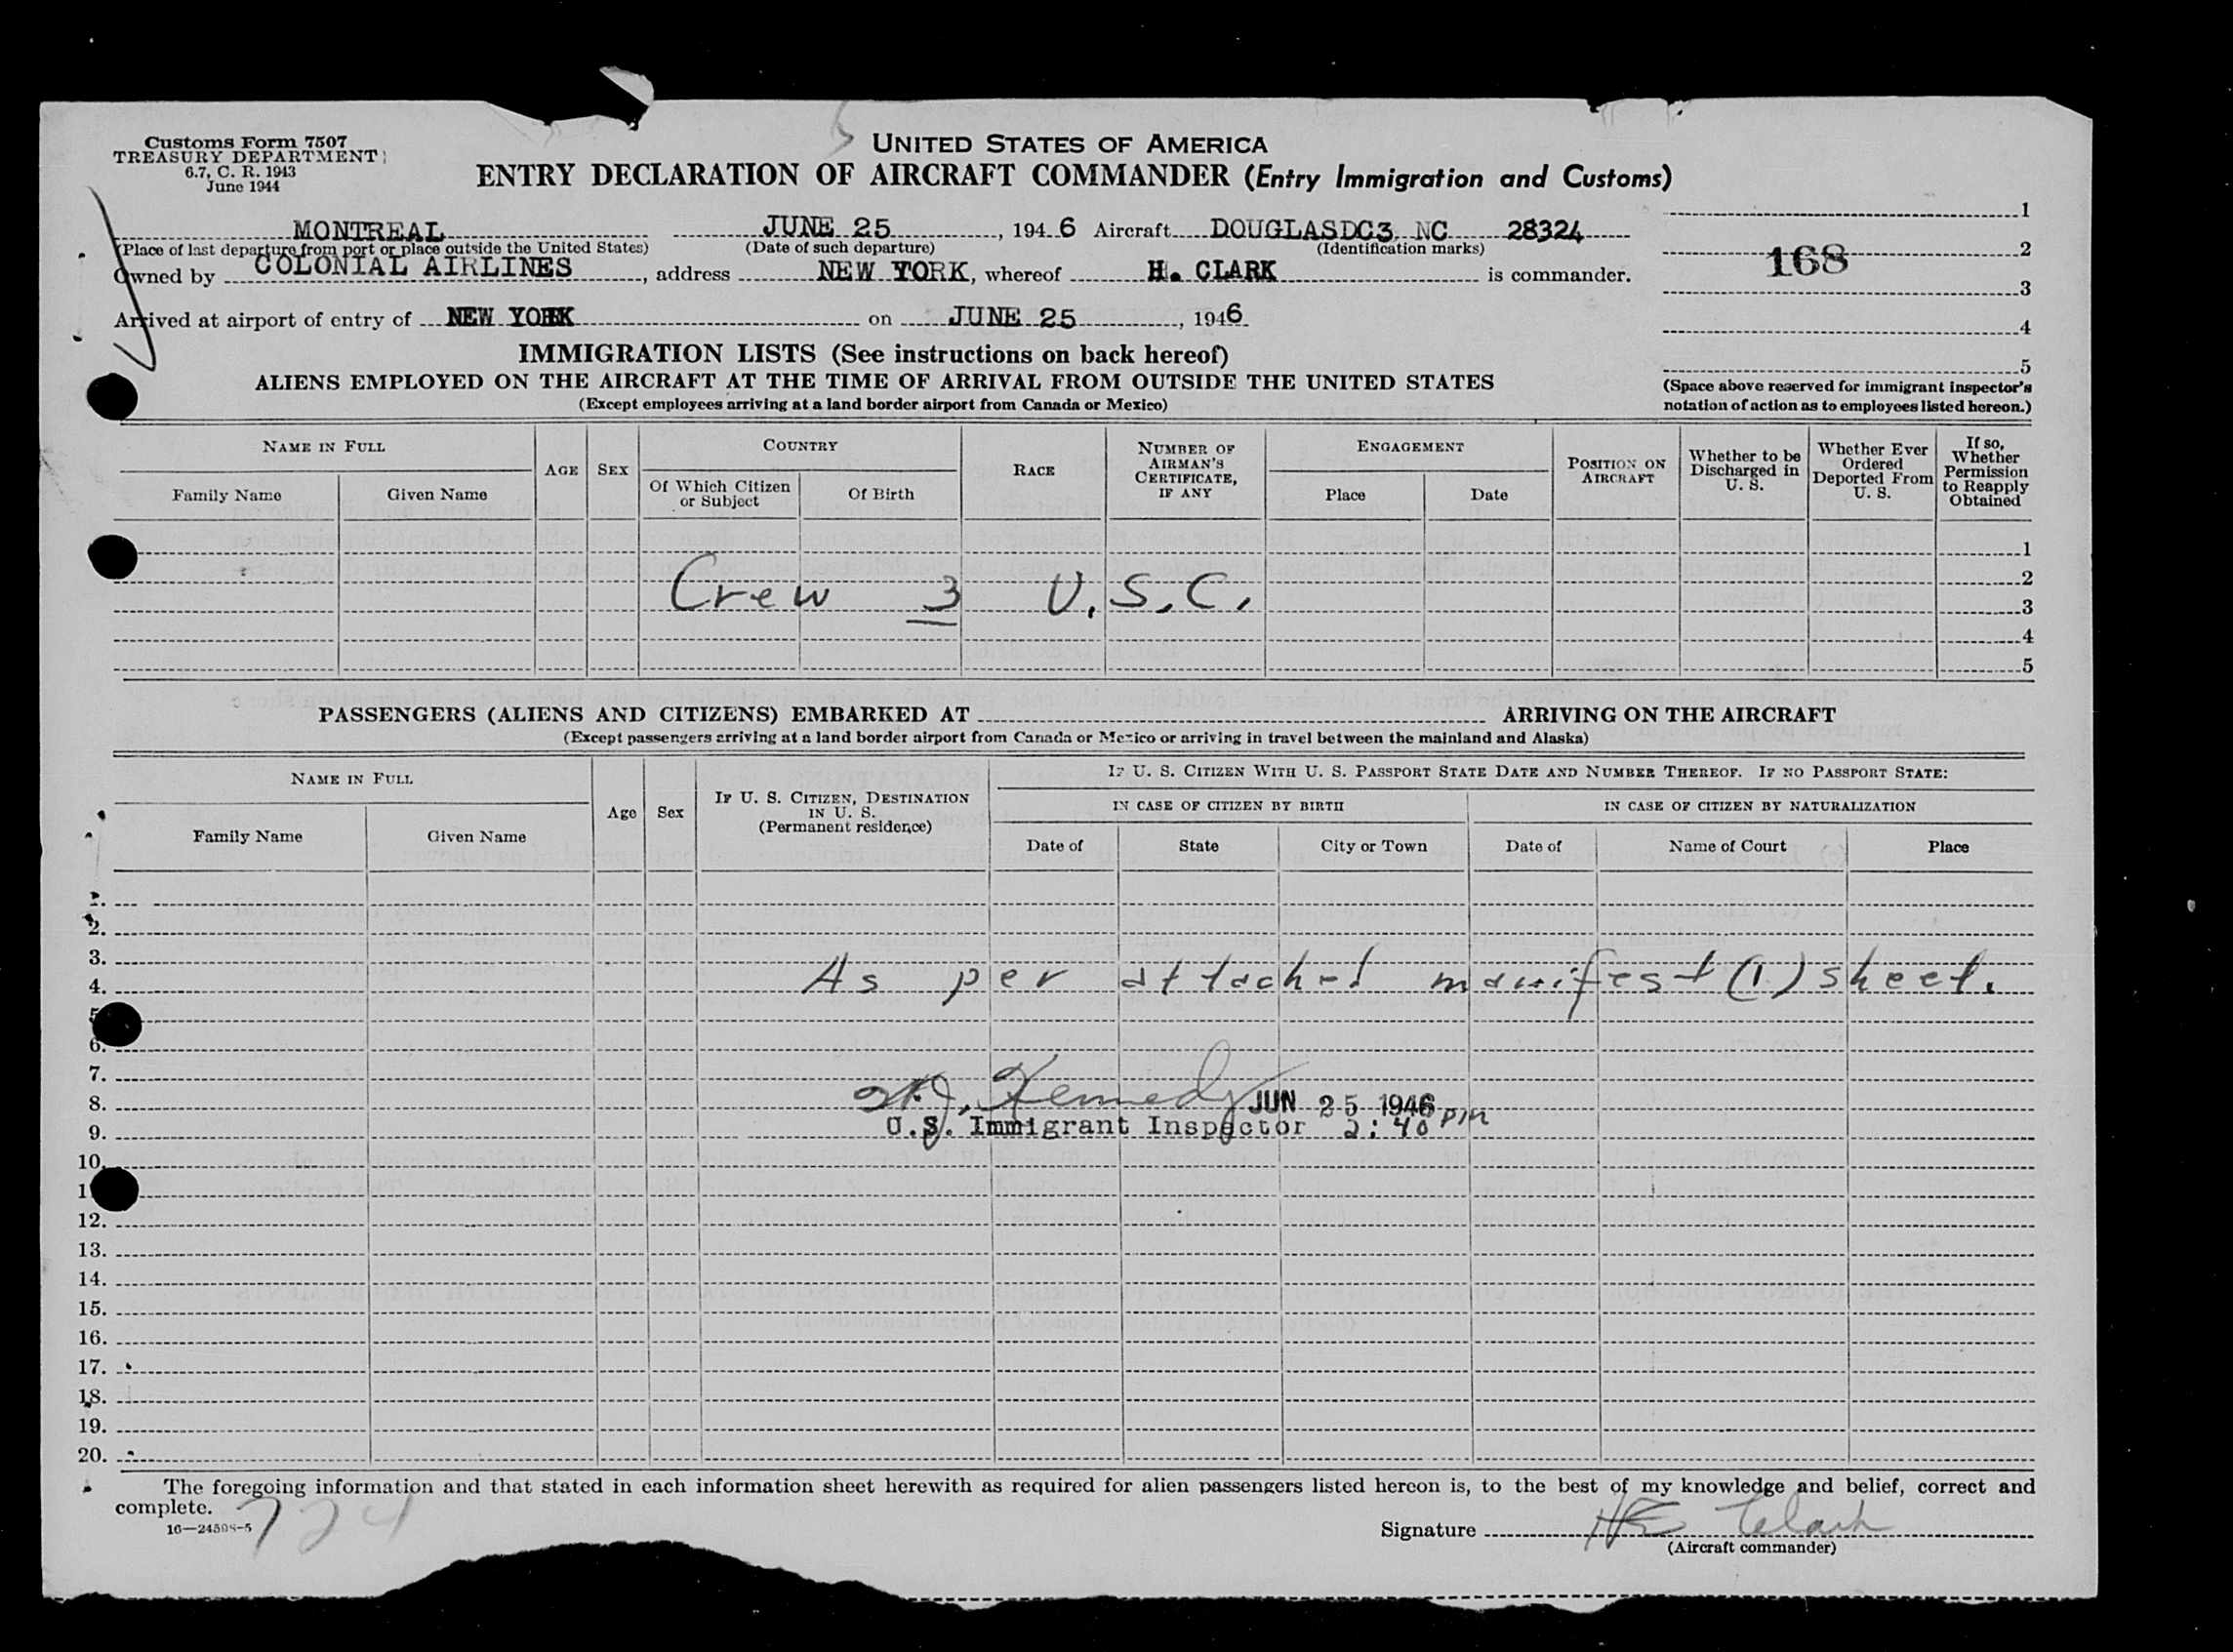 Customs Form 7507
TREASURY DEPARTMENT
6.7, C. R. 1943
June 1944
UNITED STATES OF AMERICA
ENTRY DECLARATION OF AIRCRAFT COMMANDER (Entry Immigration and Customs)
MONTREAL JUNE 25, 1946 Aircraft DOUGLASDC3 NC 28324
(Place of last departure from port or place outside the United States) (Date of such departure) (Identification marks)
Owned by COLONIAL AIRLINES, address NEW YORK, whereof H. CLARK is commander.
Arrived at airport of entry of NEW YORK on JUNE 25, 1946
1
2
168
3
4
5
(Space above reserved for immigrant inspector's
notation of action as to employees listed hereon.)
IMMIGRATION LISTS (See instructions on back hereof)
ALIENS EMPLOYED ON THE AIRCRAFT AT THE TIME OF ARRIVAL FROM OUTSIDE THE UNITED STATES
(Except employees arriving at a land border airport from Canada or Mexico)
NAME IN FULL
Family Name Given Name
AGE
SEX
COUNTRY
Of Which Citizen or Subject
Of Birth
RACE
NUMBER OF AIRMAN'S CERTIFICATE, IF ANY
ENGAGEMENT
Place Date
POSITION ON AIRCRAFT
Whether to be Discharged in U. S.
Whether Ever Ordered Deported From U. S.
If so, Whether Permission to Reapply Obtained
1
2
Crew 3 U.S.C. 3
4
5
PASSENGERS (ALIENS AND CITIZENS) EMBARKED AT ARRIVING ON THE AIRCRAFT
(Except passengers arriving at a land border airport from Canada or Mexico or arriving in travel between the mainland and Alaska)
NAME IN FULL
Family Name Given Name
Age
Sex
IF U. S. CITIZEN, DESTINATION IN U. S.
(Permanent residence)
IF U. S. CITIZEN WITH U. S. PASSPORT STATE DATE AND NUMBER THEREOF. IF NO PASSPORT STATE:
IN CASE OF CITIZEN BY BIRTH IN CASE OF CITIZEN BY NATURALIZATION
Date of State City or Town Date of Name of Court Place
1.
2.
3.
4. As per attached manifest (1) sheet.
5
6.
7.
8. Kennedy JUN 25 1946
9. U.S. Immigrant Inspector 2:40 PM
10.
1
12.
13.
14.
15.
16.
17.
18.
19.
20.
The foregoing information and that stated in each information sheet herewith as required for alien passengers listed hereon is, to the best of my knowledge and belief, correct and
complete.
16—24598-5 724
Signature HE Clark
(Aircraft commander)